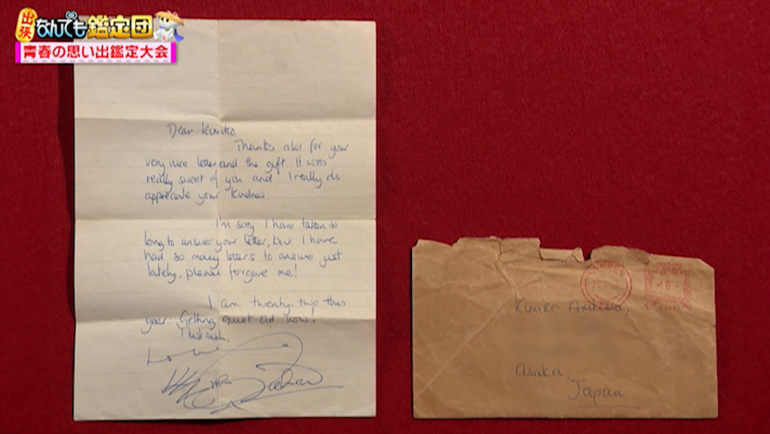 出張
なんでも鑑定団
青春の思い出鑑定大会
Dear
Thanks a lot for your
very nice letter and the gift. It was
really sweet of you and I really do
appreciate your kindness.
I'm sorry I have taken so
long to answer your letter, but I have
had so many letters to answer just
lately, please forgive me!
I am twenty-two this
year. Getting quiet old now!
Love
Asaka,
Japan